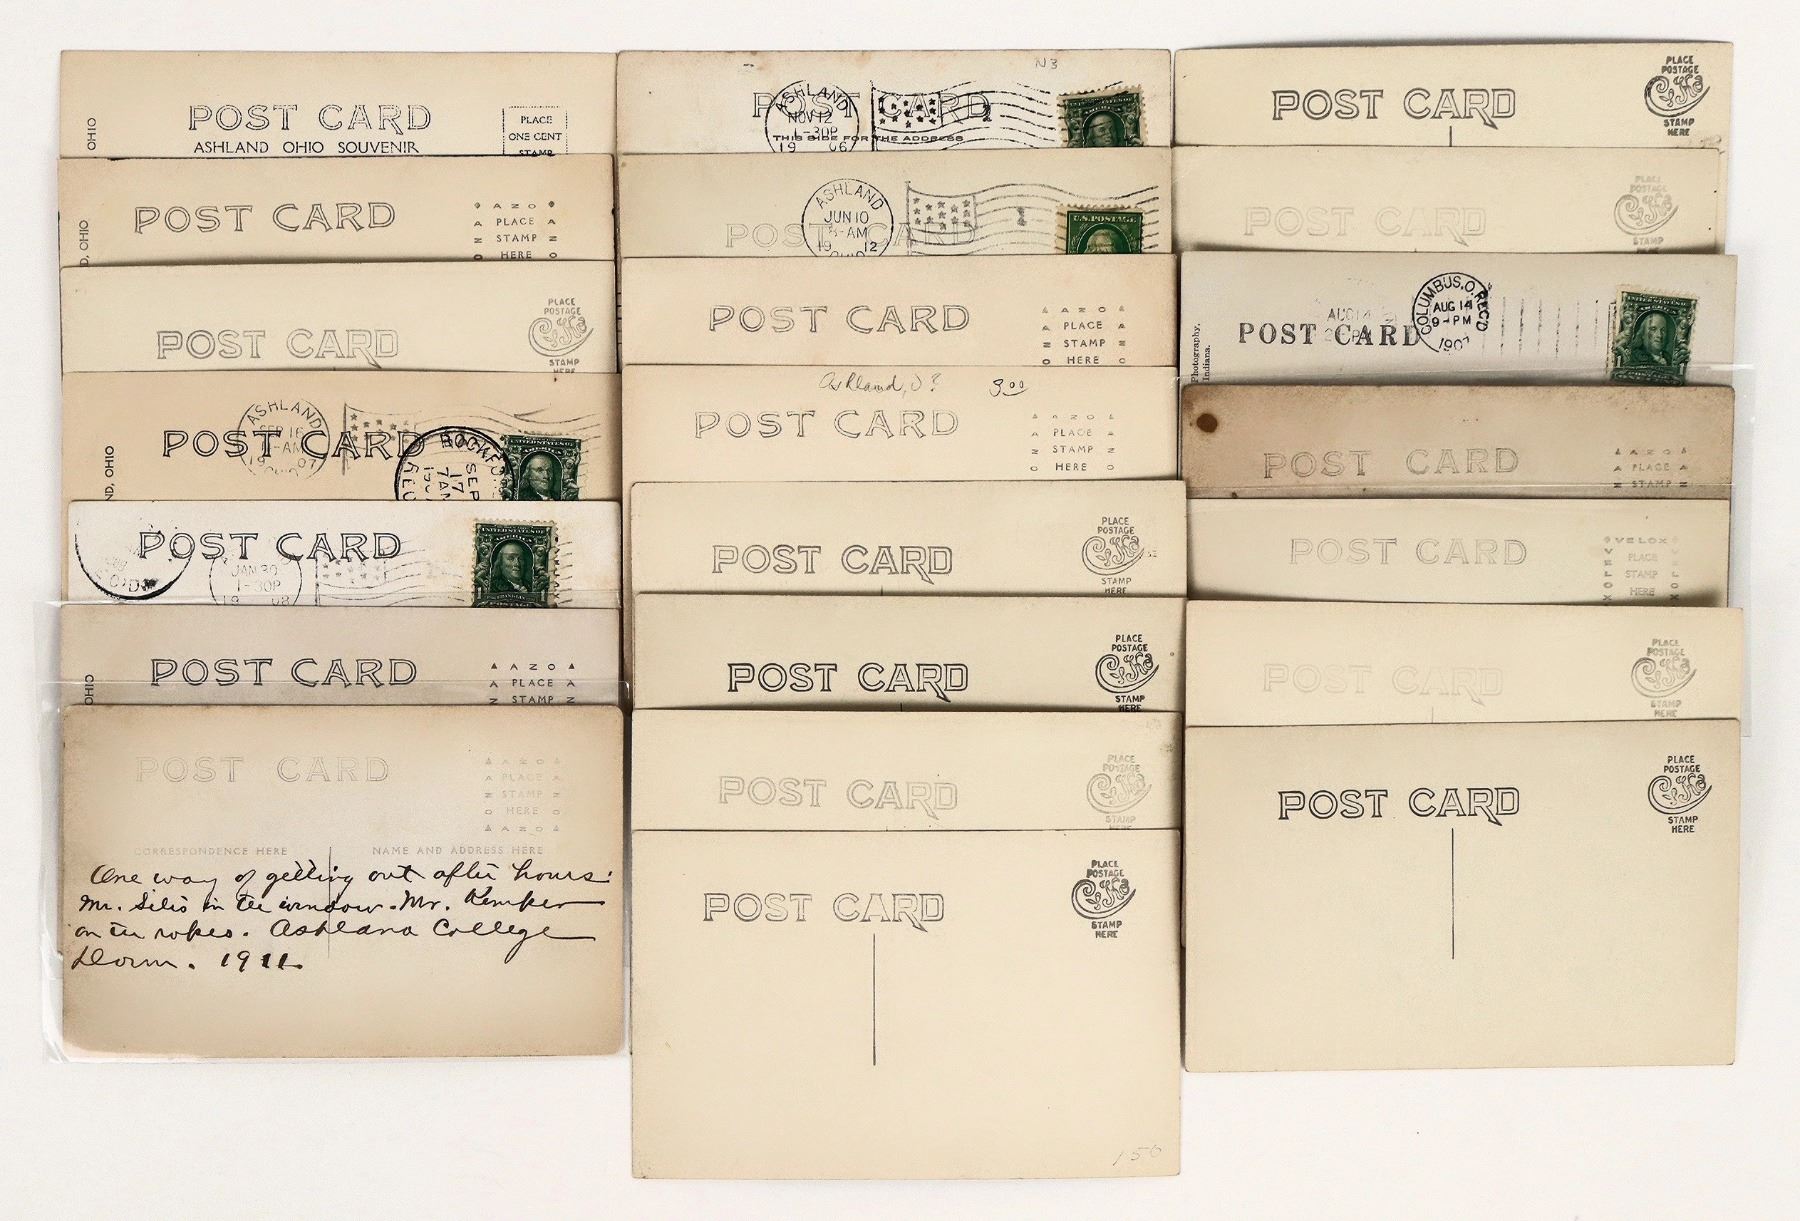 OHIO
POST CARD
ASHLAND OHIO SOUVENIR
PLACE
ONE CENT
STAMP
D, OHIO
POST CARD
AZO
PLACE
STAMP
HERE
POST CARD
PLACE
POSTAGE
STAMP
HERE
ND, OHIO
POST CARD
ASHLAND
SEP 16
AM
19 07
OHIO
SEP
17
7 AM
POST CARD
JAN 30
1-30P
19 08
OHIO
POST CARD
AZO
PLACE
STAMP
POST CARD
AZO
PLACE
STAMP
HERE
AZO
CORRESPONDENCE HERE
NAME AND ADDRESS HERE
One way of getting out after hours.
Mr. Silis in the window. Mr. Kemper
on the ropes. Ashland College
Dorm. 1911.
N3
POST CARD
THIS SIDE FOR THE ADDRESS
ASHLAND
NOV 12
1-30P
19 06
POST CARD
ASHLAND
JUN 10
AM
19 12
OHIO
U.S. POSTAGE
POST CARD
AZO
PLACE
STAMP
HERE
Ashland, O? 3.00
POST CARD
AZO
PLACE
STAMP
HERE
POST CARD
PLACE
POSTAGE
STAMP
HERE
POST CARD
PLACE
POSTAGE
STAMP
HERE
POST CARD
PLACE
POSTAGE
STAMP
HERE
POST CARD
PLACE
POSTAGE
STAMP
HERE
150
POST CARD
PLACE
POSTAGE
STAMP
HERE
POST CARD
PLACE
POSTAGE
STAMP
HERE
Photography,
Indiana.
POST CARD
AUG 14
COLUMBUS, O. REC'D
AUG 14
9-PM
1907
POST CARD
AZO
PLACE
STAMP
POST CARD
VELOX
PLACE
STAMP
HERE
POST CARD
PLACE
POSTAGE
STAMP
HERE
POST CARD
PLACE
POSTAGE
STAMP
HERE